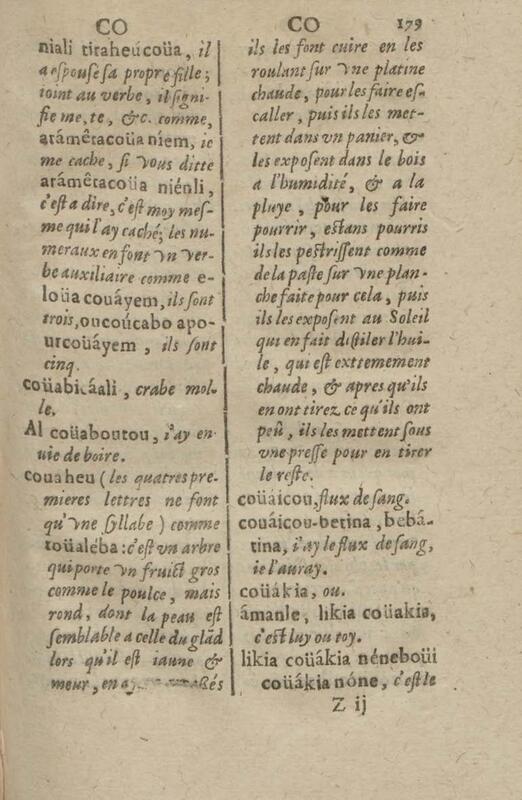 CO
niali tiraheúcoüa, il
a espousé sa propre fille;
ioint au verbe, il signi-
fie me, te, &c. comme,
arámêtacoüa niem, ie
me cache, si vous ditte
arámêtacoüa niénli,
c'est a dire, c'est moy mes-
me qui l'ay caché; les nu-
meraux en font vn ver-
be auxiliaire comme e-
loüa couáyem, ils sont
trois, oucoúcabo apo-
urcoüáyem, ils sont
cinq.
coüabicáali, crabe mol-
le.
Al coüaboutou, i'ay en-
uie de boire.
couaheu (les quatres pre-
mieres lettres ne font
qu'vne syllabe) comme
toüaléba: c'est vn arbre
qui porte vn fruict gros
comme le poulce, mais
rond, dont la peau est
semblable a celle du glãd
lors qu'il est iaune &
meur, en
CO 179
ils les font cuire en les
roulant sur vne platine
chaude, pour les faire es-
caller, puis ils les met-
tent dans vn panier, &
les exposent dans le bois
a l'humidité, & a la
pluye, pour les faire
pourrir, estans pourris
ils les pestrissent comme
de la paste sur vne plan-
che faite pour cela, puis
ils les exposent au Soleil
qui en fait distiler l'hui-
le, qui est exttemement
chaude, & apres qu'ils
en ont tirez ce qu'ils ont
peû, ils les mettent sous
vne presse pour en tirer
le reste.
coüáicou, flux de sang.
couáicou-betina, bebá-
tina, i'ay le flux de sang,
ie l'auray.
coüákia, ou.
ámanle, likia coüakia,
c'est luy ou toy.
likia coüákia néneboüi
coüákia nóne, c'est le
Z ij